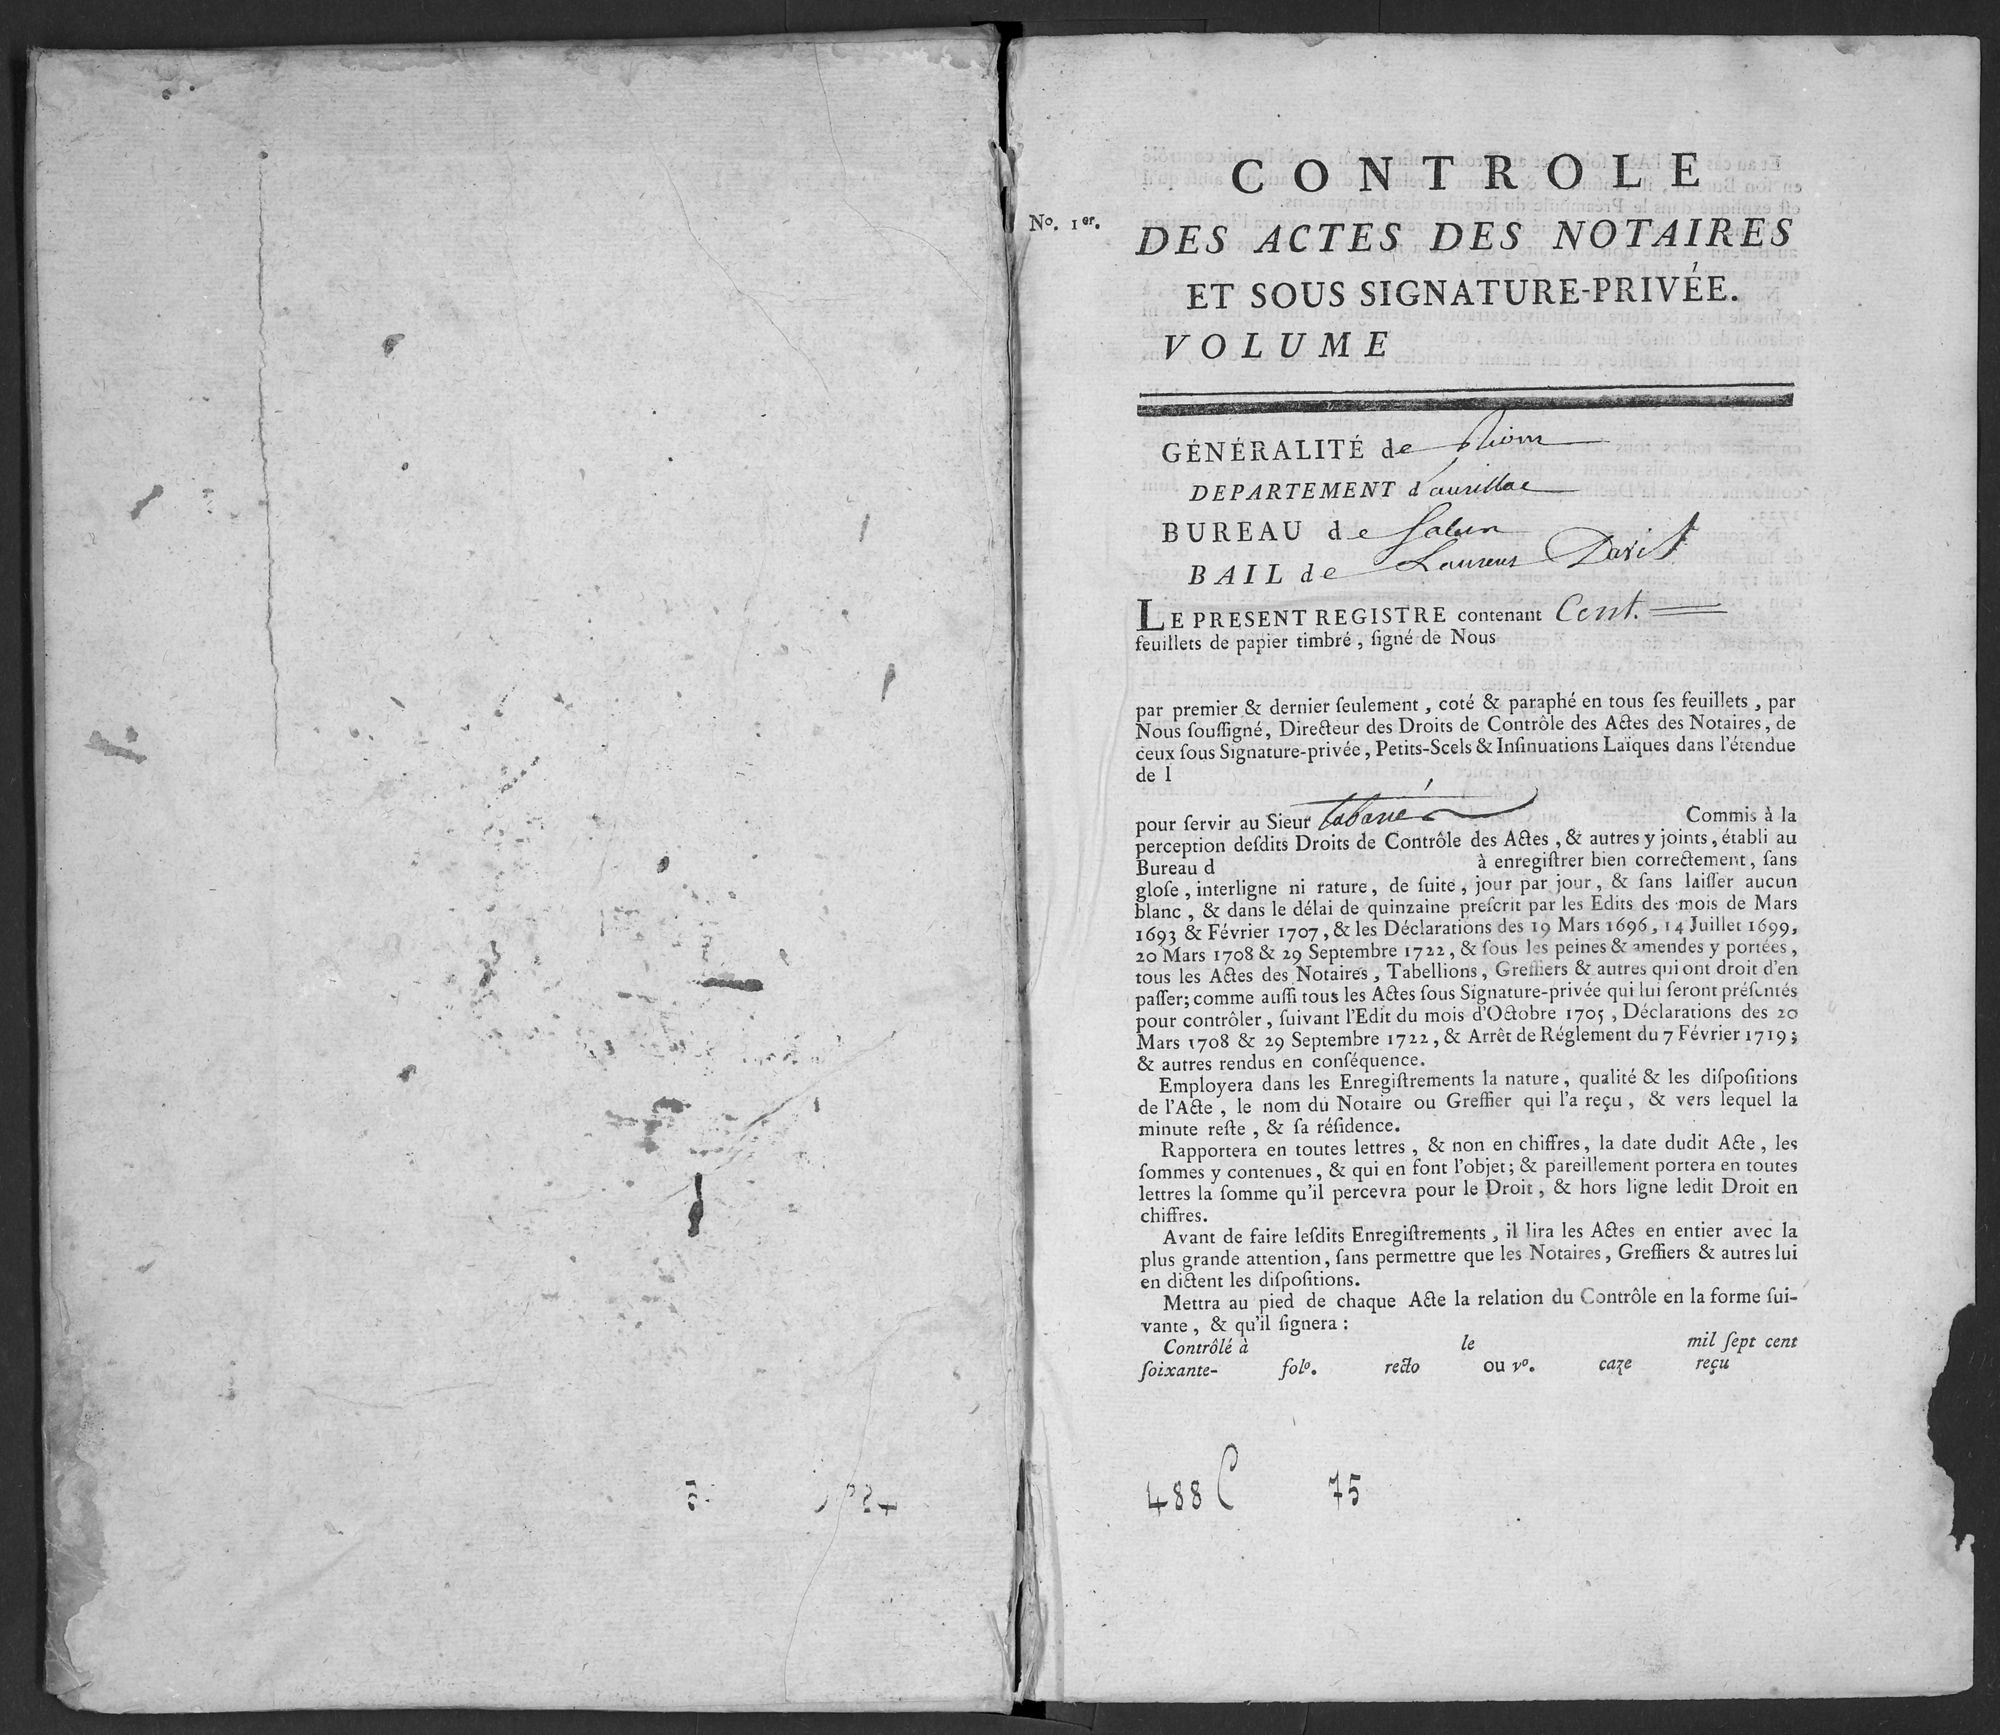 CONTROLE
No. 1er.
DES ACTES DES NOTAIRES
ET SOUS SIGNATURE-PRIVÉE.
VOLUME
GÉNÉRALITÉ de Riom
DEPARTEMENT d'aurillac
BUREAU de
BAIL de Laurens David
LE PRESENT REGISTRE contenant Cent.
feuillets de papier timbré, ſigné de Nous
par premier & dernier ſeulement, coté & paraphé en tous ſes feuillets, par
Nous ſouſſigné, Directeur des Droits de Contrôle des Actes des Notaires, de
ceux ſous Signature-privée, Petits-Scels & Inſinuations Laïques dans l'étendue
de l
pour ſervir au Sieur Tabarié Commis à la
perception deſdits Droits de Contrôle des Actes, & autres y joints, établi au
Bureau d à enregiſtrer bien correctement, ſans
gloſe, interligne ni rature, de ſuite, jour par jour, & ſans laiſſer aucun
blanc, & dans le délai de quinzaine preſcrit par les Edits des mois de Mars
1693 & Février 1707, & les Déclarations des 19 Mars 1696, 14 Juillet 1699,
20 Mars 1708 & 29 Septembre 1722, & ſous les peines & amendes y portées,
tous les Actes des Notaires, Tabellions, Greffiers & autres qui ont droit d'en
paſſer; comme auſſi tous les Actes ſous Signature-privée qui lui ſeront préſentés
pour contrôler, ſuivant l'Edit du mois d'Octobre 1705, Déclarations des 20
Mars 1708 & 29 Septembre 1722, & Arrêt de Réglement du 7 Février 1719;
& autres rendus en conſéquence.
Employera dans les Enregiſtrements la nature, qualité & les diſpoſitions
de l'Acte, le nom du Notaire ou Greffier qui l'a reçu, & vers lequel la
minute reſte, & ſa réſidence.
Rapportera en toutes lettres, & non en chiffres, la date dudit Acte, les
ſommes y contenues, & qui en font l'objet; & pareillement portera en toutes
lettres la ſomme qu'il percevra pour le Droit, & hors ligne ledit Droit en
chiffres.
Avant de faire leſdits Enregiſtrements, il lira les Actes en entier avec la
plus grande attention, ſans permettre que les Notaires, Greffiers & autres lui
en dictent les diſpoſitions.
Mettra au pied de chaque Acte la relation du Contrôle en la forme ſui-
vante, & qu'il ſignera :
Contrôlé à le mil ſept cent
ſoixante- folo. recto ou vo. caze reçu
488 C 75